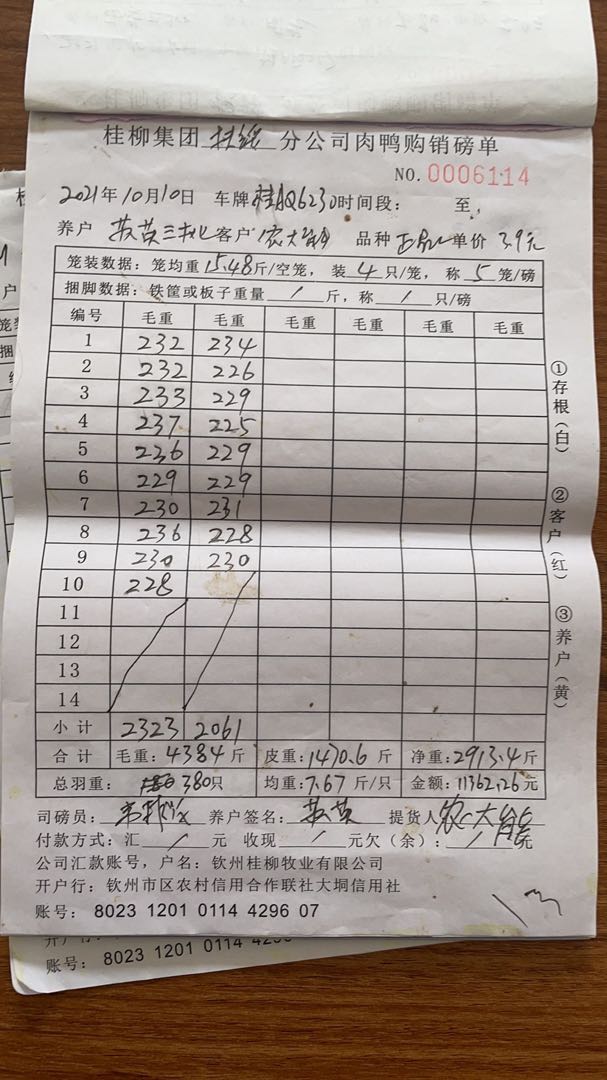 桂柳集团 扶绥 分公司肉鸭购销磅单
NO. 0006114
2021年10月10日 车牌 桂AQ6230 时间段： 至
养户 苏英三批 客户 农大 品种 单价 3.9元
笼装数据：笼均重 15.48 斤/空笼，装 4 只/笼，称 5 笼/磅
捆脚数据：铁筐或板子重量 / 斤，称 / 只/磅
编号 毛重 毛重 毛重 毛重 毛重 毛重
1 232 234
2 232 226
3 233 229
4 237 225
5 236 229
6 229 229
7 230 231
8 236 228
9 230 230
10 228
11
12
13
14
小计 2323 2061
合计 毛重：4384斤 皮重：1470.6斤 净重：2913.4斤
总羽重： 380只 均重：7.67斤/只 金额：11362.26元
司磅员： 养户签名：苏英 提货人 农大
付款方式：汇 / 元 收现 / 元欠（余）： / 元
公司汇款账号，户名：钦州桂柳牧业有限公司
开户行：钦州市区农村信用合作联社大垌信用社
账号：8023 1201 0114 4296 07
①存根（白）
②客户（红）
③养户（黄）
账号：8023 1201 0114 4296